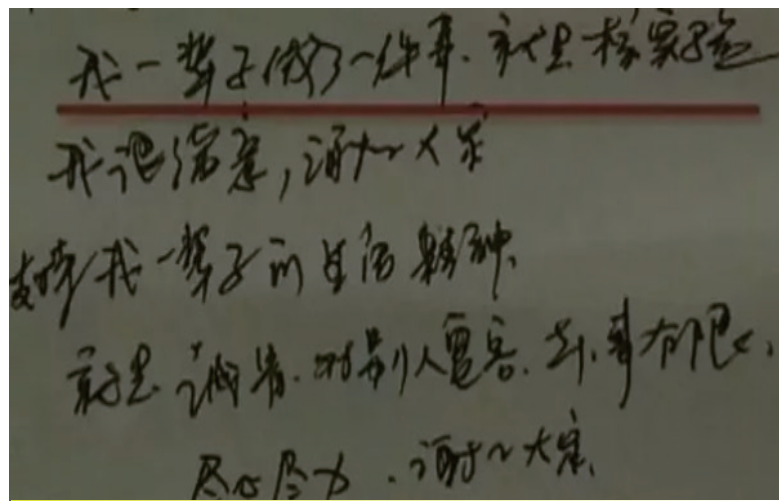 我一辈子做了一件事.就是核实验
我很满意,谢谢大家
支持我一辈子的是信 精神.
就是诚肯.对别人宽容.去事有恒心,
尽心尽力.谢谢大家.